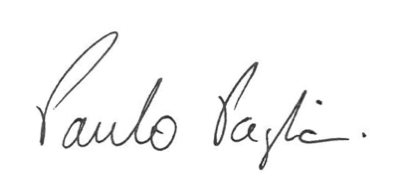 Paulo Paglia.